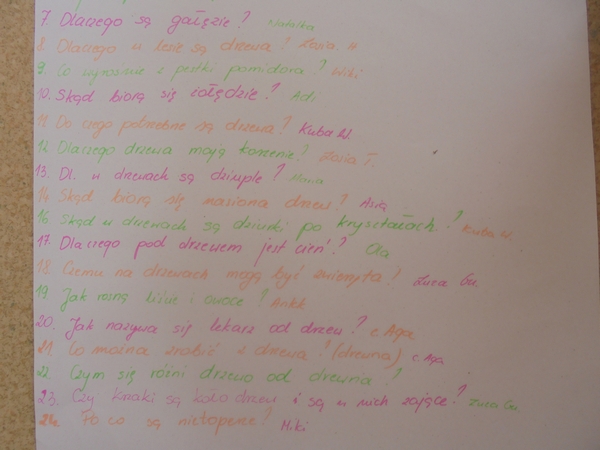 7. Dlaczego są gałęzie? Natalka
8. Dlaczego w lesie są drzewa? Zosia H.
9. Co wyrośnie z pestki pomidora? Wiki
10. Skąd biorą się żołędzie? Adi
11. Do czego potrzebne są drzewa? Kuba W.
12. Dlaczego drzewa mają korzenie? Zosia T.
13. Dl. w drzewach są dziuple? Maria
14. Skąd biorą się nasiona drzew? Asia
16. Skąd w drzewach są dziurki po kryształach? Kuba W.
17. Dlaczego pod drzewem jest cień? Ola
18. Czemu na drzewach mogą być zwierzęta? Zuza Gu.
19. Jak rosną liście i owoce? Antek
20. Jak nazywa się lekarz od drzew? c. Aga
21. Co można zrobić z drzewa? (drewna) c. Aga
22. Czym się różni drzewo od drewna?
23. Czy krzaki są koło drzew i są w nich zające? Zuza Gu.
24. Po co są nietoperze? Miki